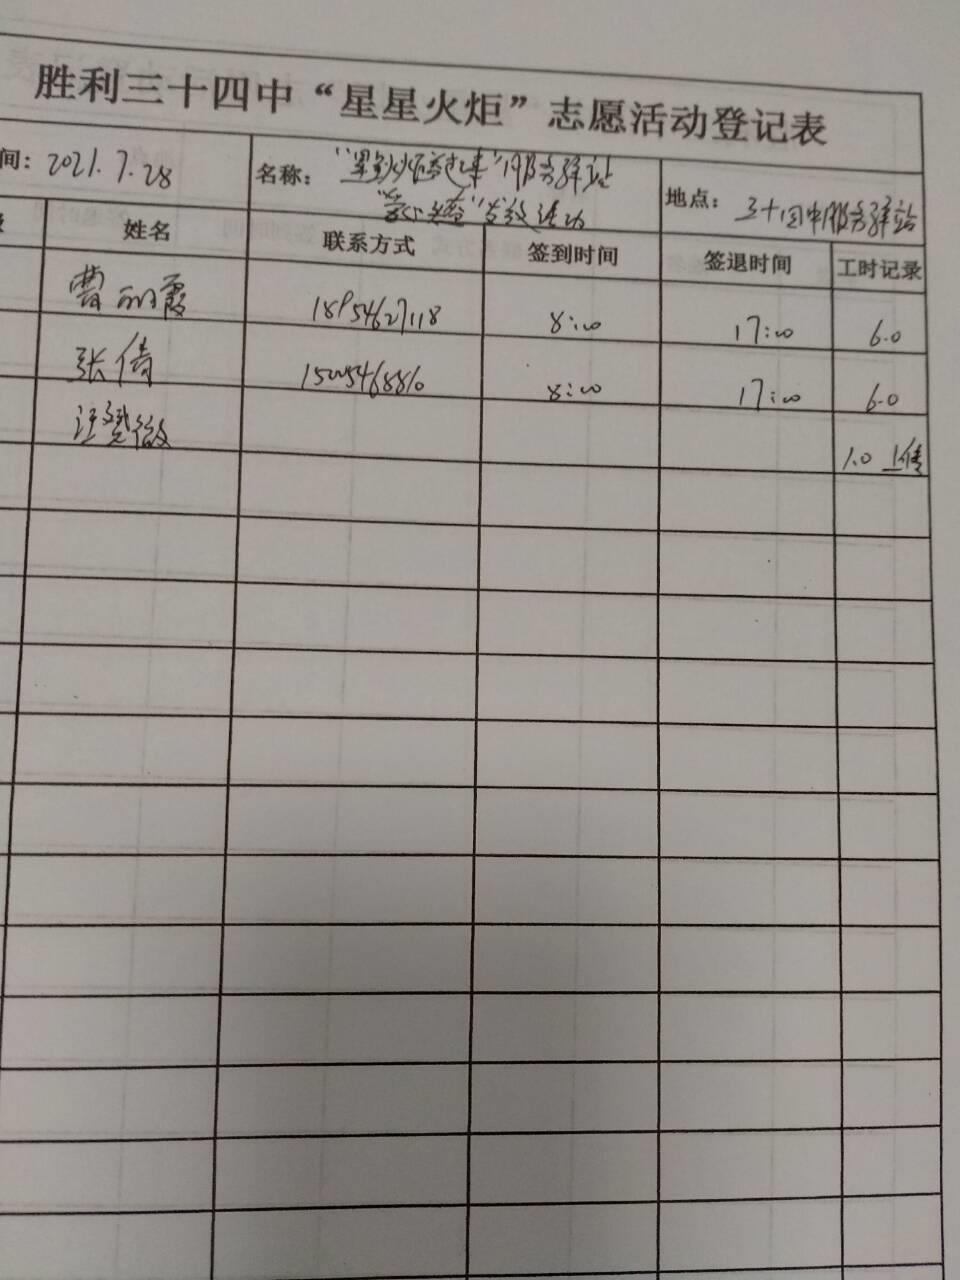 胜利三十四中“星星火炬”志愿活动登记表
间：2021.7.28 名称： 服务驿站 地点：三十四中服务驿站
发放活动
姓名 联系方式 签到时间 签退时间 工时记录
曹丽霞 18954627118 8:00 17:00 6.0
张倩 8:00 17:00 6.0
汪赟徽 1.0 上传